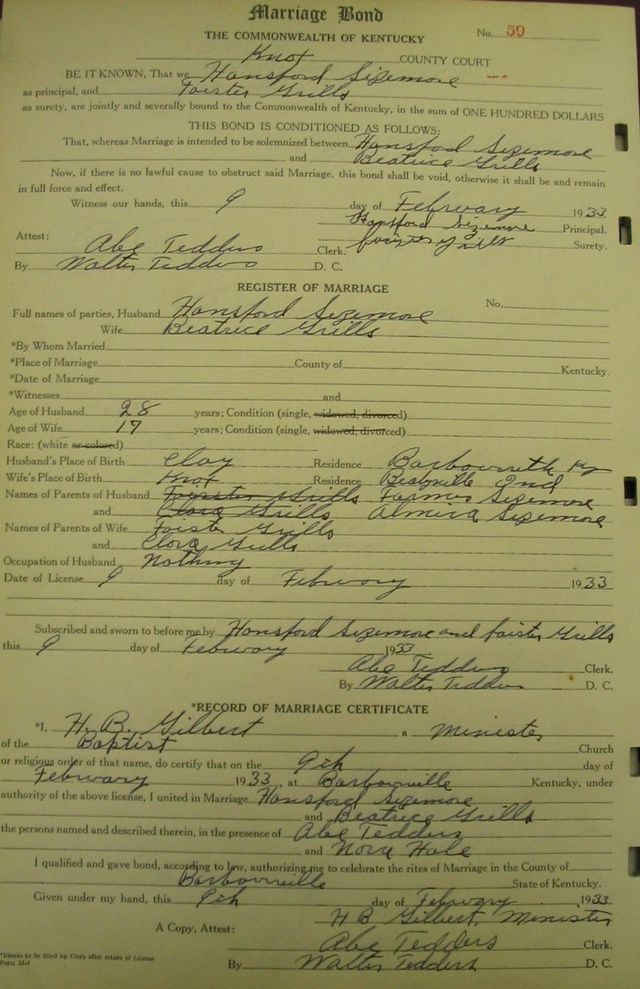 Marriage Bond
No. 59
THE COMMONWEALTH OF KENTUCKY
Knox COUNTY COURT
BE IT KNOWN, That we Hansford Sizemore
as principal, and Foister Grills
as surety, are jointly and severally bound to the Commonwealth of Kentucky, in the sum of ONE HUNDRED DOLLARS
THIS BOND IS CONDITIONED AS FOLLOWS:
That, whereas Marriage is intended to be solemnized between Hansford Sizemore
and Beatrice Grills
Now, if there is no lawful cause to obstruct said Marriage, this bond shall be void, otherwise it shall be and remain
in full force and effect.
Witness our hands, this 9 day of February 1933
Hansford Sizemore Principal.
Attest: Foister Grills Surety.
Abe Tedders Clerk.
By Walter Tedders D. C.
REGISTER OF MARRIAGE
No.
Full names of parties, Husband Hansford Sizemore
Wife Beatrice Grills
*By Whom Married
*Place of Marriage County of Kentucky.
*Date of Marriage
*Witnesses and
Age of Husband 28 years; Condition (single, widowed, divorced)
Age of Wife 17 years; Condition (single, widowed, divorced)
Race: (white or colored)
Husband's Place of Birth Clay Residence Barbourville Ky
Wife's Place of Birth Knox Residence Ind
Names of Parents of Husband Foister Grills Farmer Sizemore
and Clora Grills Almira Sizemore
Names of Parents of Wife Foister Grills
and Clora Grills
Occupation of Husband Nothing
Date of License 9 day of February 1933
Subscribed and sworn to before me by Hansford Sizemore and Foister Grills
this 9 day of February 1933
Abe Tedders Clerk.
By Walter Tedders D. C.
*RECORD OF MARRIAGE CERTIFICATE
*I, H. B. Gilbert a Minister
of the Baptist Church
or religious order of that name, do certify that on the 9th day of
February 1933, at Barbourville Kentucky, under
authority of the above license, I united in Marriage Hansford Sizemore
and Beatrice Grills
the persons named and described therein, in the presence of Abe Tedders
and Nora Hale
I qualified and gave bond, according to law, authorizing me to celebrate the rites of Marriage in the County of
Barbourville State of Kentucky.
Given under my hand, this 9th day of February, 1933
H B Gilbert, Minister
A Copy, Attest: Abe Tedders Clerk.
By Walter Tedders D. C.
*Blanks to be filed by Clerk after return of License